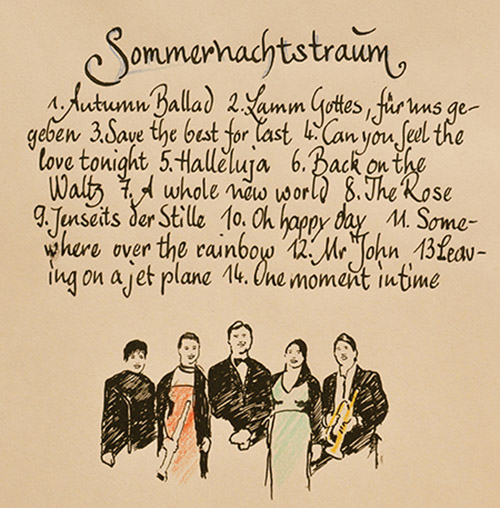 Sommernachtstraum
1. Autumn Ballad 2. Lamm Gottes, für uns ge-
geben 3. Save the best for last 4. Can you feel the
love tonight 5. Halleluja 6. Back on the
Waltz 7. A whole new world 8. The Rose
9. Jenseits der Stille 10. Oh happy day 11. Some-
where over the rainbow 12. Mr John 13 Leav-
ing on a jet plane 14. One moment in time